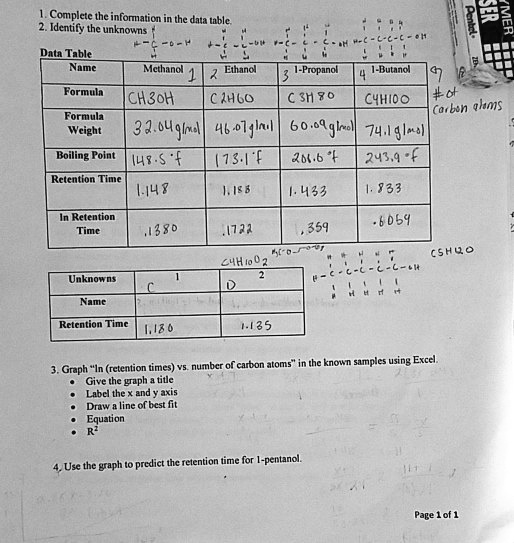 1. Complete the information in the data table.
2. Identify the unknowns
Data Table
Name Methanol 1 2 Ethanol 3 1-Propanol 4 1-Butanol
# of
carbon atoms
Formula CH3OH C2H6O C3H8O C4H10O
Formula Weight 32.04g/mol 46.07g/mol 60.09g/mol 74.1g/mol
Boiling Point 148.5°f 173.1°f 206.6°f 243.9°f
Retention Time 1.148 1.188 1.433 1.833
ln Retention Time .1380 .1722 .359 .6059
C4H10O2
C5H12O
Unknowns 1 C 2 D
Name
Retention Time 1.130 1.135
3. Graph “ln (retention times) vs. number of carbon atoms” in the known samples using Excel.
• Give the graph a title
• Label the x and y axis
• Draw a line of best fit
• Equation
• R²
4. Use the graph to predict the retention time for 1-pentanol.
Page 1 of 1
Pentel